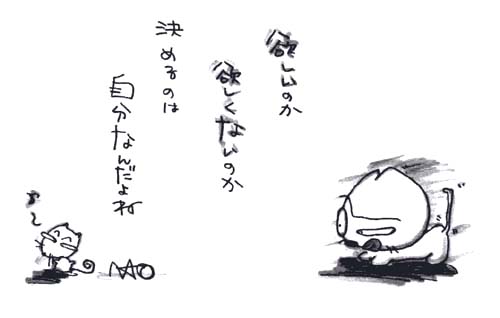 欲しいのか
欲しくないのか
決めるのは
自分なんだよね
NAO